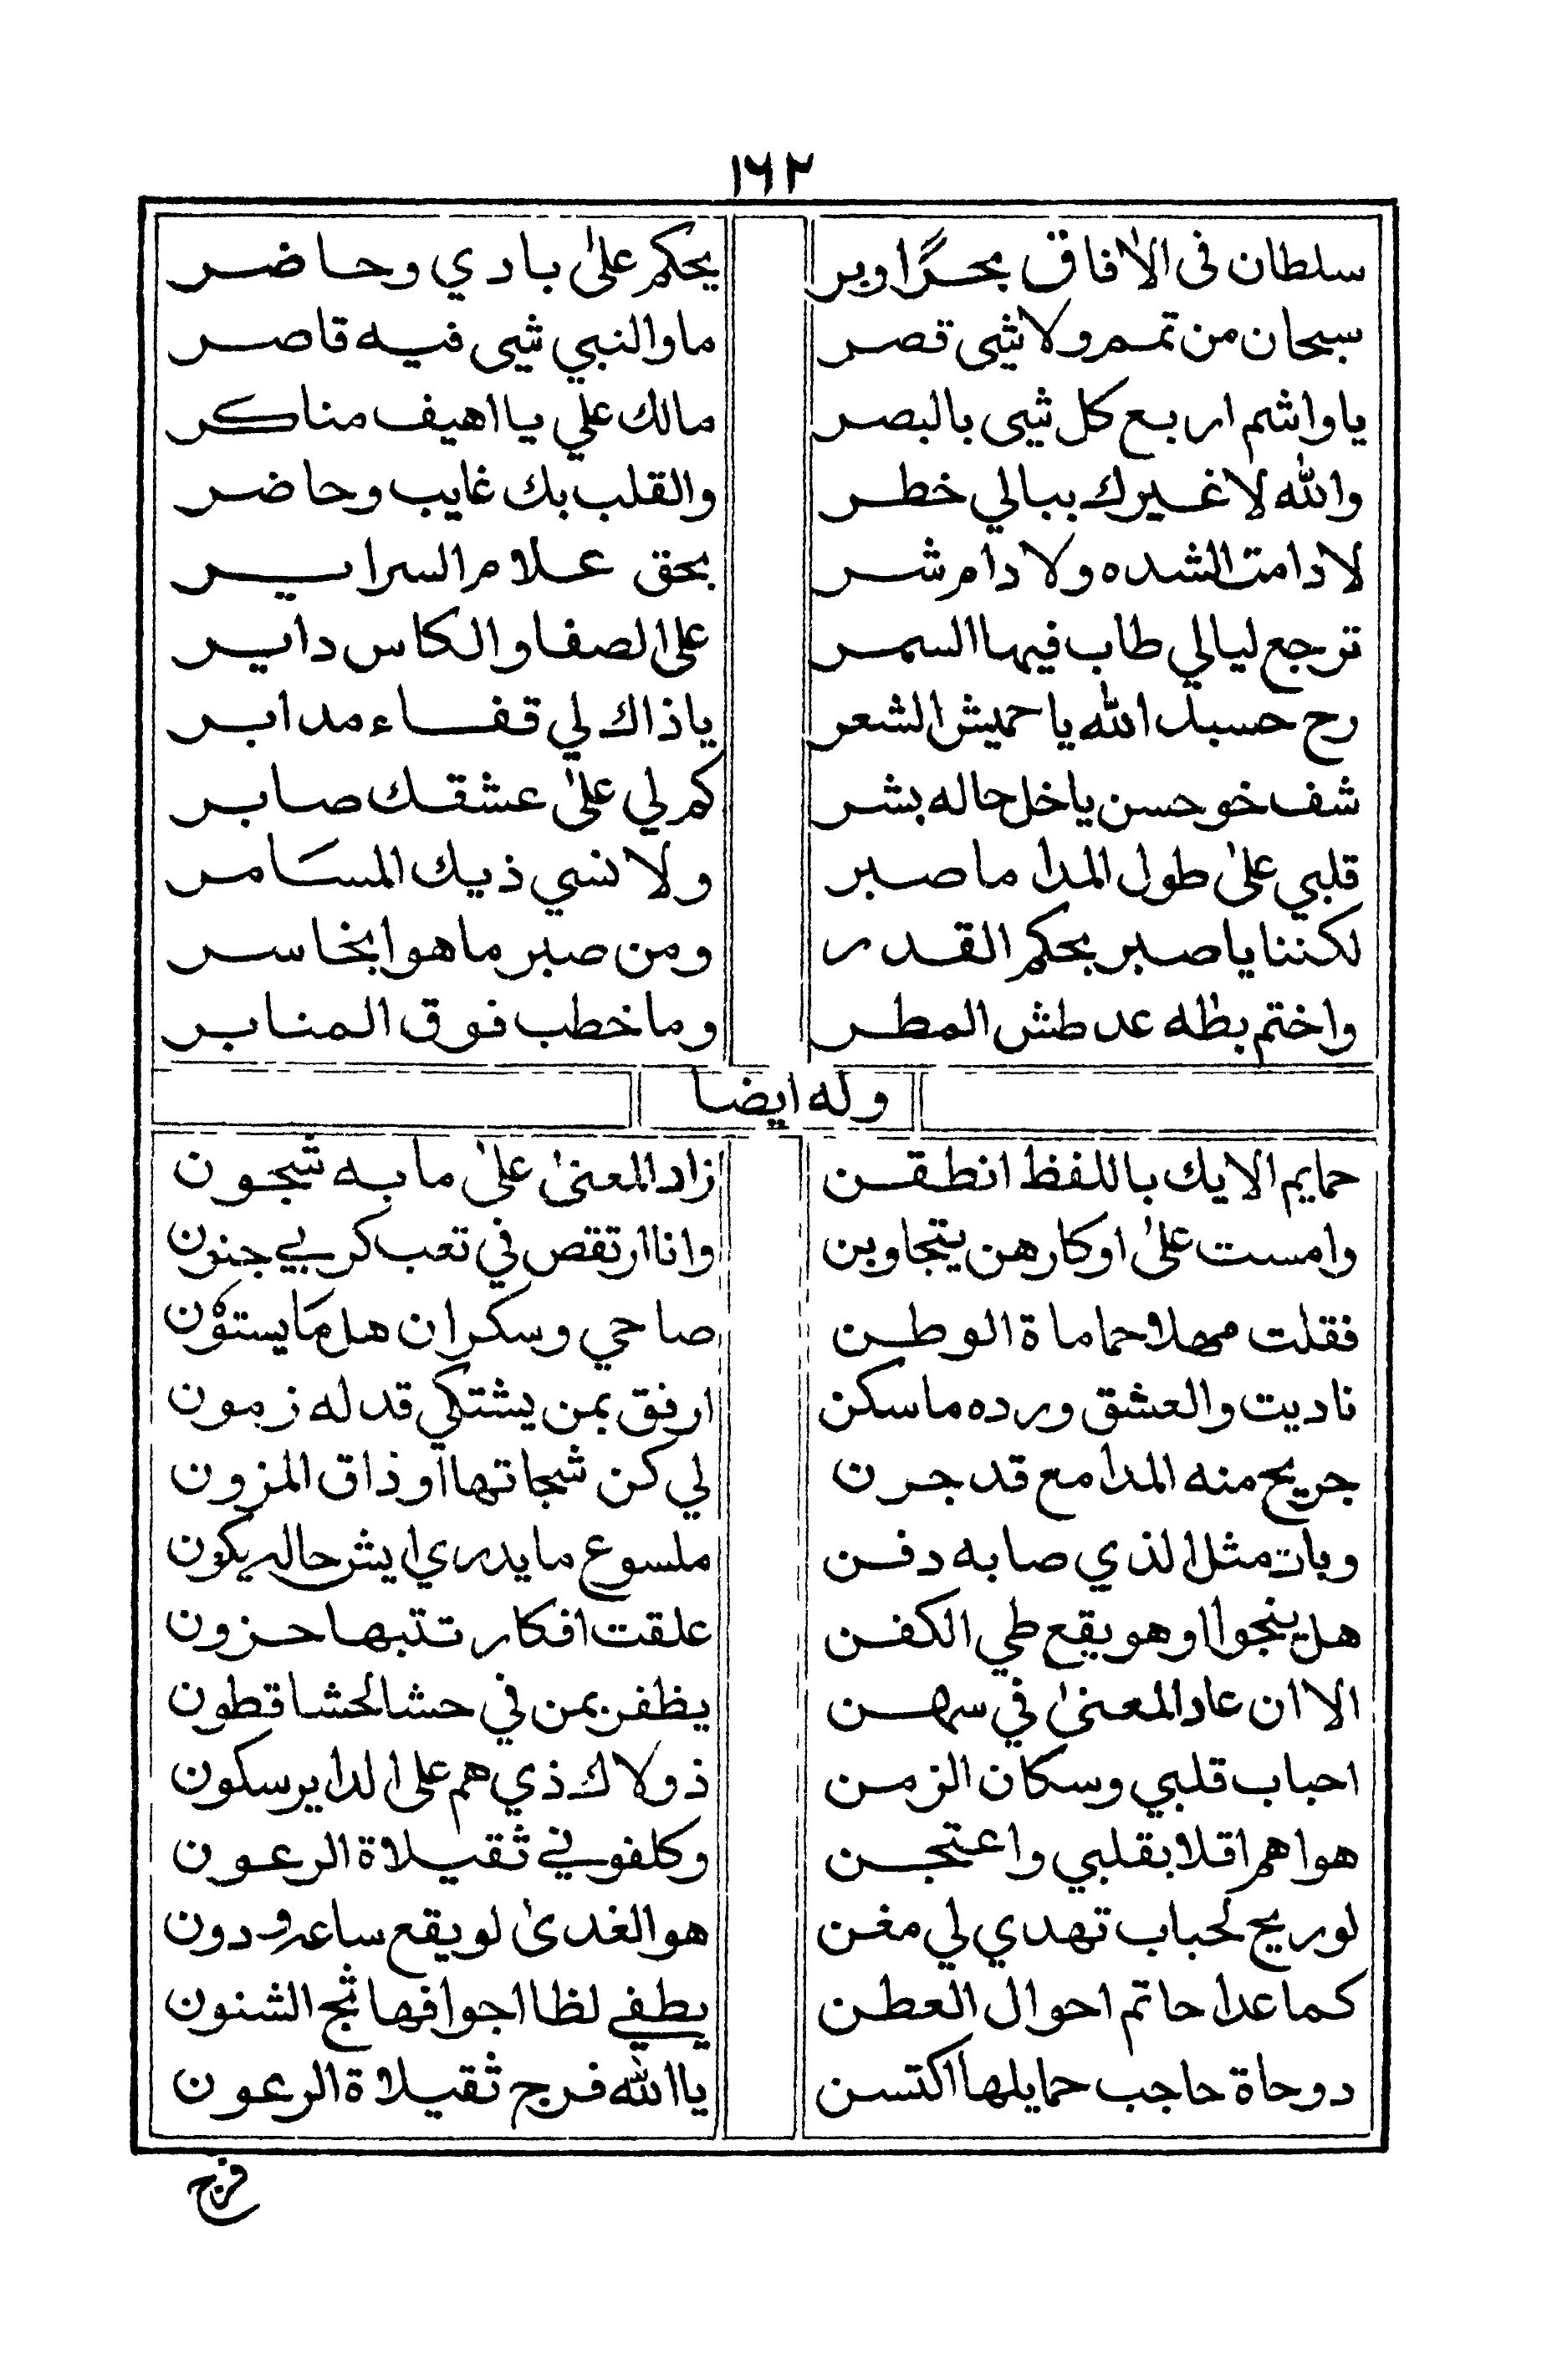 ١٦٢
سلطان فى الافاق بحرًا وبر يحكم على بادي وحاضر
سبحان من تمم ولا شى قصر ما والنبي شى فيه قاصر
يا واشم اربع كل شى بالبصر مالك علي يا اهيف مناكر
والله لا غيرك ببالي خطر والقلب بك غايب وحاضر
لا دامت الشده ولا دام شر بحق علام السراير
ترجع ليالي طاب فيها السمر على الصفا والكاس داير
رح حسبك الله يا حميش الشعر يا ذاك لي قفاء مدابر
شف خو حسن يا خل حاله بشر كم لي على عشقك صابر
قلبي على طول المدا ما صبر ولا نسي ذيك المسَامر
لكننا يا صبر بحكم القدر ومن صبر ما هوا بخاسر
واختم بطه عد طش المطر وما خطب فوق المنابر
وله ايضا
حمايم الايك باللفظ انطقن زاد المعنى على ما به شجون
وامست على اوكارهن يتجاوبن وانا ارتقص في تعب كربي جنون
فقلت مهلا حماماة الوطن صاحي وسكران هل مَا يستوُن
ناديت والعشق ورده ما سكن ارفق بمن يشتكي قد له زمون
جريح منه المدامع قد جرن لي كن شجاتها اوذاق المزون
وبات مثل الذي صابه دفن ملسوع ما يدري ايش حاله يكون
هل ينجوا اوهو يقع طي الكفن علقت افكار تتبها حزون
الا ان عاد المعنى في سهن يظفر بمن في حشا لحشا قطون
احباب قلبي وسكان الزمن ذولاك ذي هم على الداير سكون
هواهم اقلا بقلبي واعتجن وكلفوني ثقيلاة الرعون
لو ريح لحباب تهدي لي مغن هو الغدى لو يقع ساعه ودون
كما عدا حاتم احوال العطن يطفي لظا اجوافها ثج الشنون
دوحاة حاجب حمايلها اكتسن يا الله فرج ثقيلاة الرعون
فرج